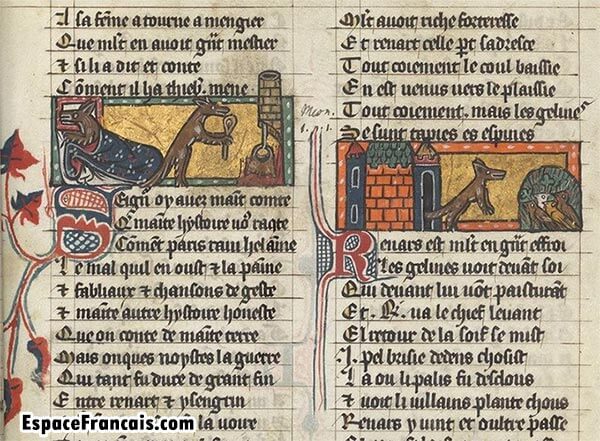 A sa feme a tourne a mengier
Que mlt en auoit gnt mestier
& si li a dit et conte
Coment il ha thieb'. mene
Seignr oy auez maīt conte
Q̄ maīte hystoire vo' raq̄te
Coment paris raui helaine
Le mal quil en oust & la paine
& fabliaus & chansons de geste
& maīte autre hystoire honeste
Que on conte de maīte terre
Mais onques noystes la guerre
Qui tant fu dure de grant fin
Entre renart & ysengrin
Mlt auoit riche forteresse
Et renart celle pt sadresce
Tout coiement le coul baissie
En est uenus uers le plaissie
Tout coiement. mais les gelines
Se sunt tapies es espines
Renars est mlt en gnt effroi
Les gelines uoit deuāt soi
Qui deuant lui uōt paisturāt
Et .R. ua le chief leuant
El retour de la soif se mist
.I. pel brisie dedens choisist
La ou li palis fu desclous
& uoit li uillains plante chous
Renars y uint et oultre passe
EspaceFrancais.com